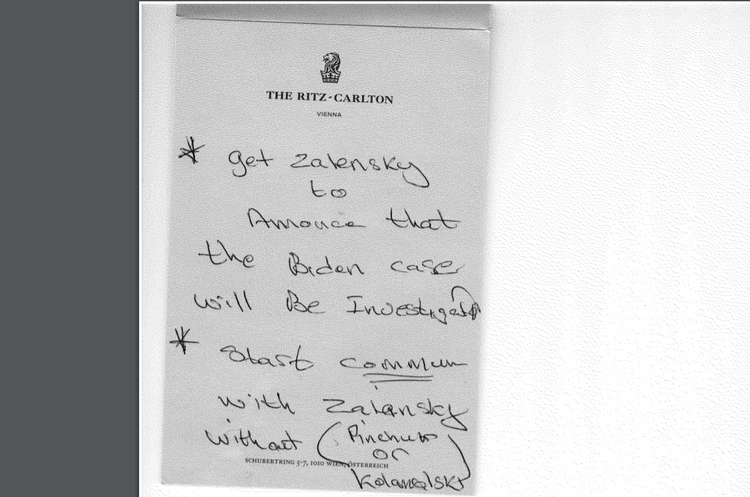 THE RITZ-CARLTON
VIENNA
* get Zalensky
to
Annouce that
the Biden case
will Be Investigated
* start commun
with Zalansky
without (Pinchuk
or
SCHUBERTRING 5-7, 1010 WIEN, ÖSTERREICH
Kolamolsky)